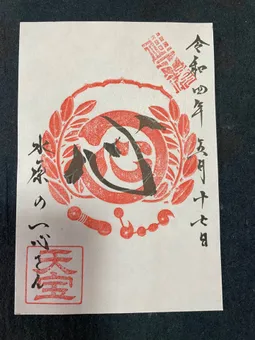 令和四年五月十七日
心
水原の一心さん
天王